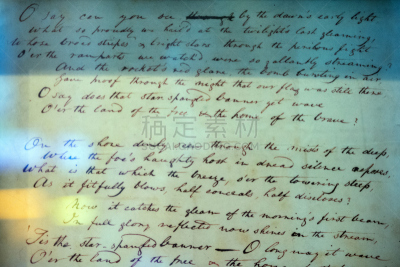 O say can you see through by the dawn's early light
What so proudly we hail'd at the twilight's last gleaming,
Whose broad stripes & bright stars through the perilous fight
O'er the ramparts we watch'd, were so gallantly streaming?
And the rocket's red glare, the bomb bursting in air,
Gave proof through the night that our flag was still there
O say does that star-spangled banner yet wave
O'er the land of the free & the home of the brave?
稿定素材
On the shore dimly seen through the mists of the deep,
Where the foe's haughty host in dread silence reposes,
What is that which the breeze, o'er the towering steep,
As it fitfully blows, half conceals, half discloses?
Now it catches the gleam of the morning's first beam,
In full glory reflected now shines in the stream,
'Tis the star-spangled banner — O long may it wave
O'er the land of the free & the home